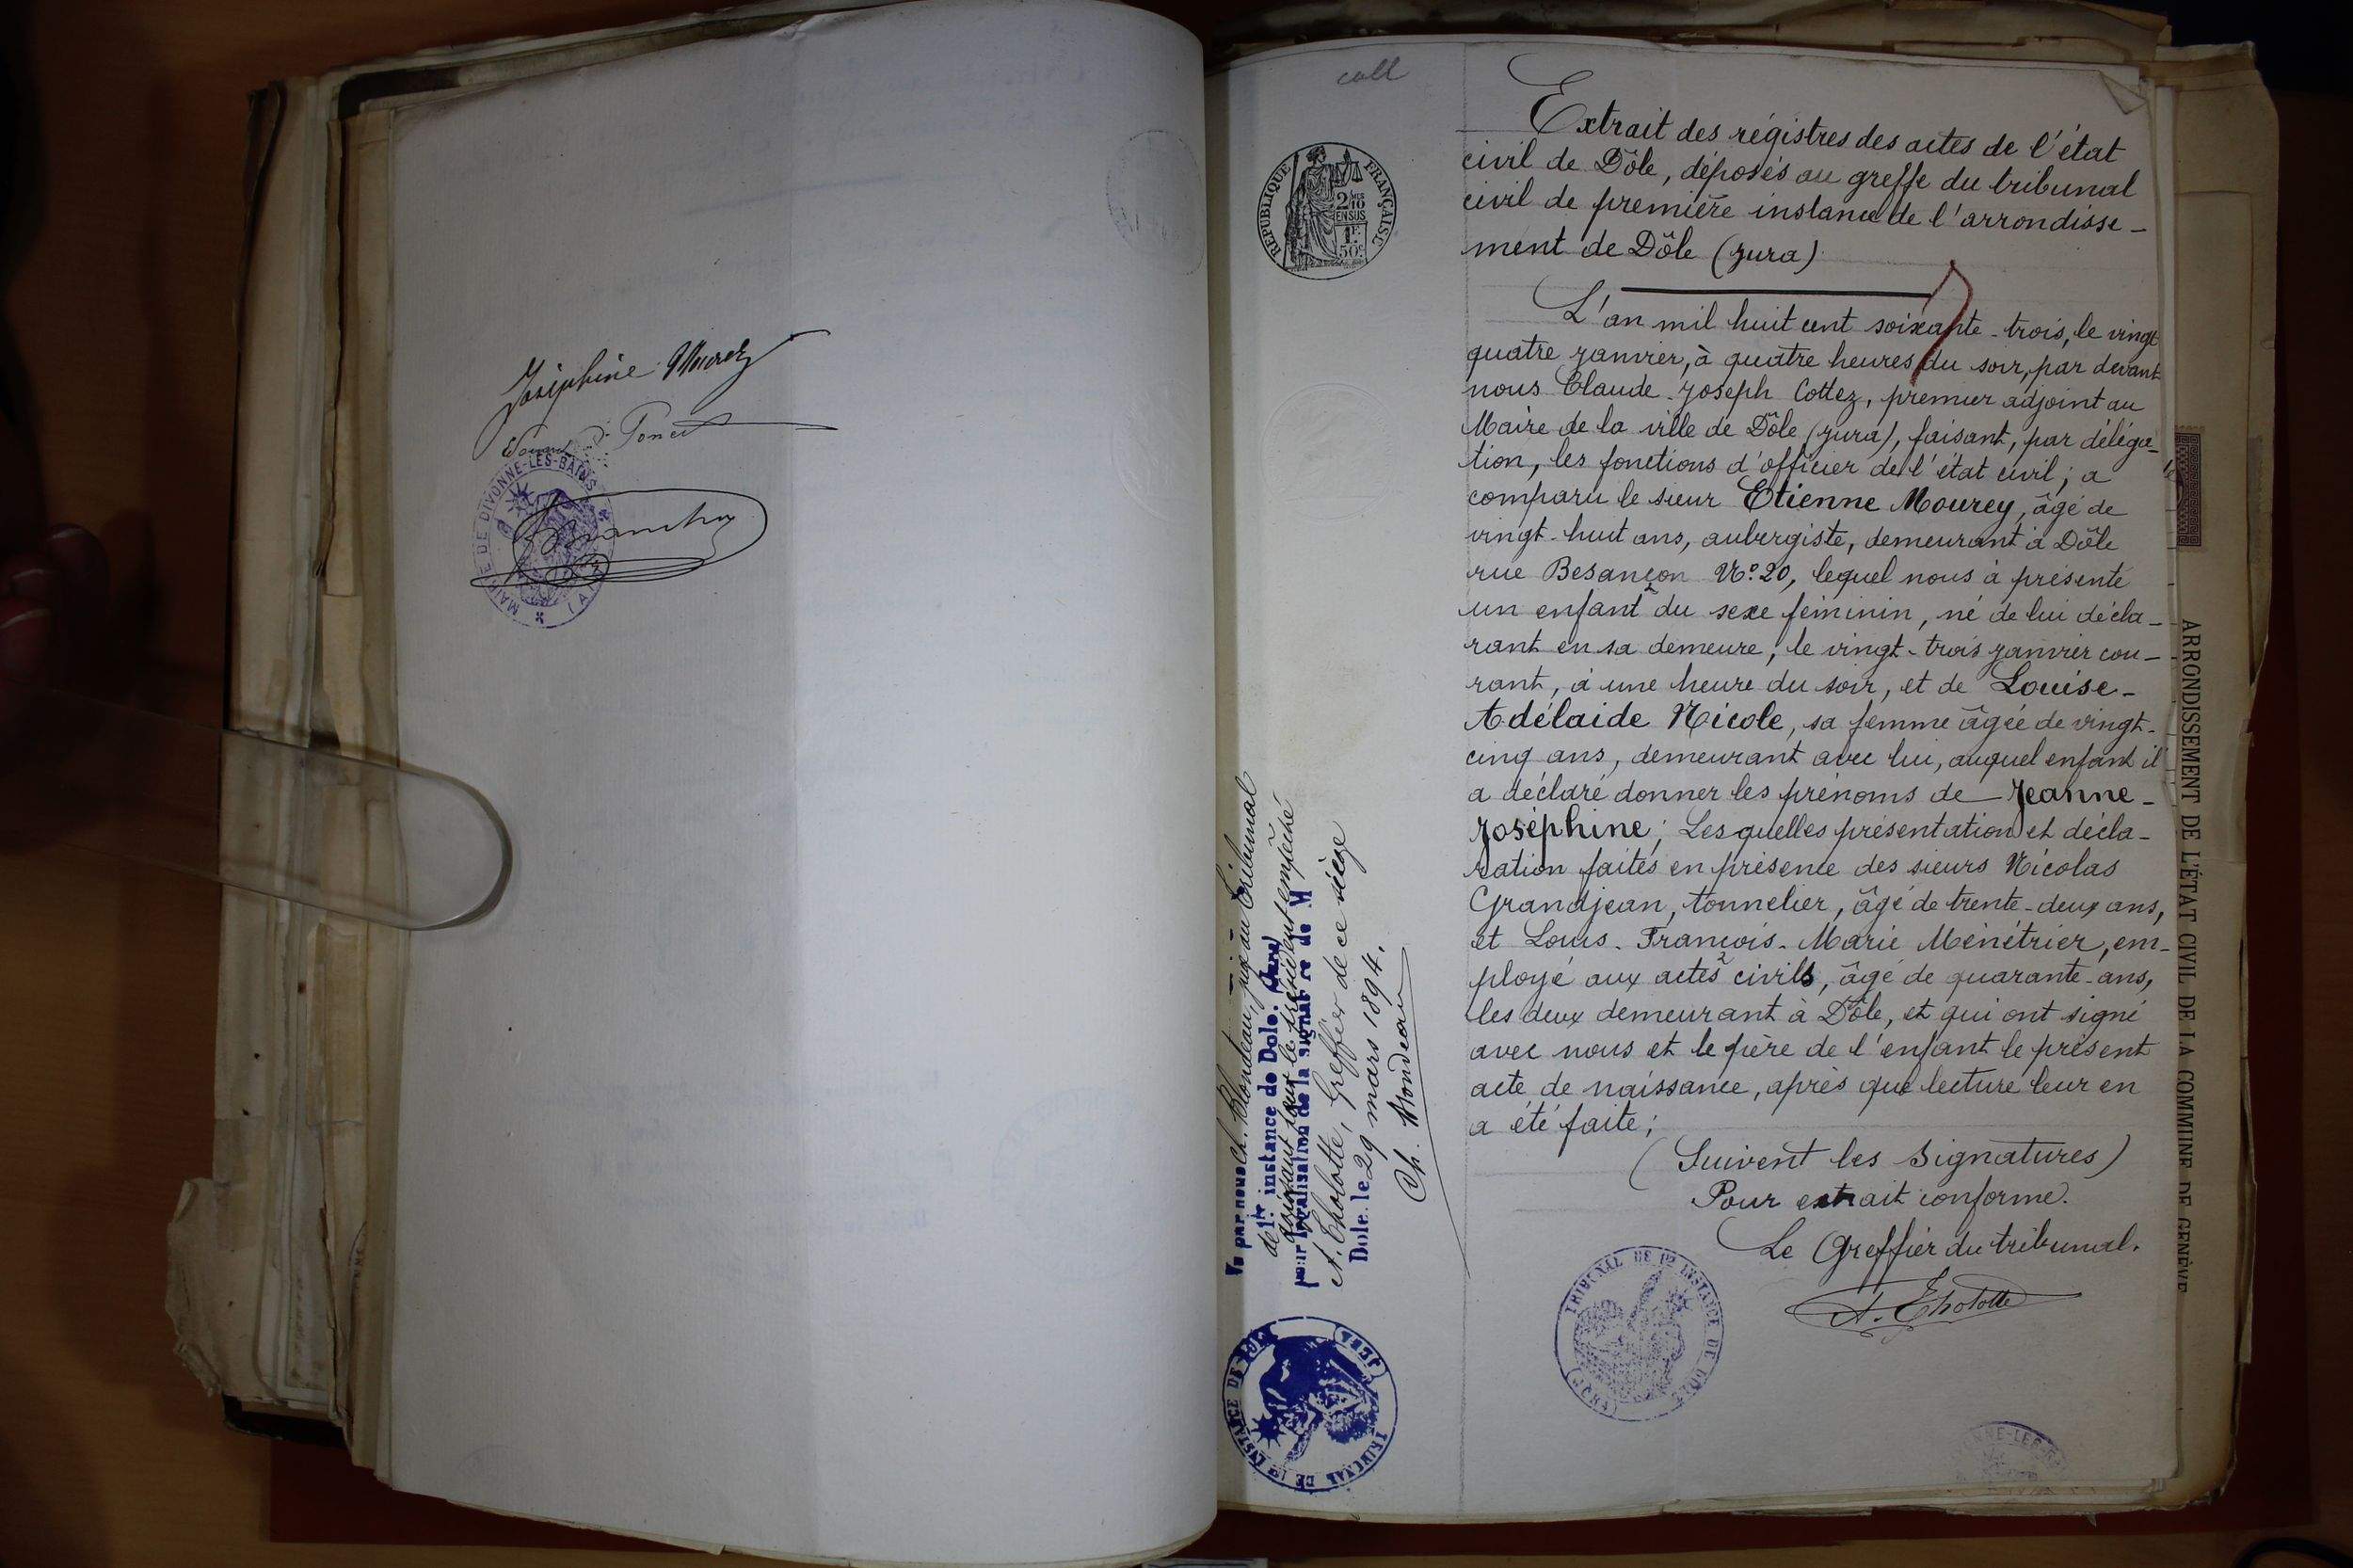 Joséphine Mourey
Poncet
MAIRIE DE DIVONNE-LES-BAINS
coll
REPUBLIQUE FRANÇAISE
2/10
EN SUS
1F
50c
Extrait des régistres des actes de l'état
civil de Dôle, déposés au greffe du tribunal
civil de première instance de l'arrondisse-
ment de Dôle (Jura)
L'an mil huit cent soixante-trois, le vingt
quatre janvier, à quatre heures du soir, par devant
nous Claude-Joseph Cottez, premier adjoint au
Maire de la ville de Dôle (Jura), faisant, par déléga-
tion, les fonctions d'officier de l'état civil; a
comparu le sieur Etienne Mourey, âgé de
vingt-huit ans, aubergiste, demeurant à Dôle
rue Besançon No. 20, lequel nous à présenté
un enfant du sexe féminin, né de lui décla-
rant en sa demeure, le vingt-trois janvier cou-
rant, à une heure du soir, et de Louise-
Adélaide Nicole, sa femme âgée de vingt-
cinq ans, demeurant avec lui, auquel enfant il
a déclaré donner les prénoms de Jeanne-
Joséphine; Lesquelles présentation et décla-
ration faites en présence des sieurs Nicolas
Grandjean, tonnelier, âgé de trente-deux ans,
et Louis-François-Marie Ménétrier, em-
ployé aux actes civils, âgé de quarante-ans,
les deux demeurant à Dôle, et qui ont signé
avec nous et le père de l'enfant le présent
acte de naissance, après que lecture leur en
a été faite;
(Suivent les Signatures)
Pour extrait conforme.
Le Greffier du tribunal.
A. Tholotte
TRIBUNAL DE 1re INSTANCE DE DOLE
(JURA)
Vu par nous Ch. Blondeau, juge au Tribunal
de 1re instance de Dole. (Jura)
désirant pour le Président empêché
pour légalisation de la signature de M
A. Tholotte, Greffier de ce siège
Dole, le 29 mars 1894.
Ch. Blondeau
TRIBUNAL DE 1re INSTANCE DE DOLE
(JURA)
ARRONDISSEMENT DE L'ÉTAT CIVIL DE LA COMMUNE DE GENÈVE